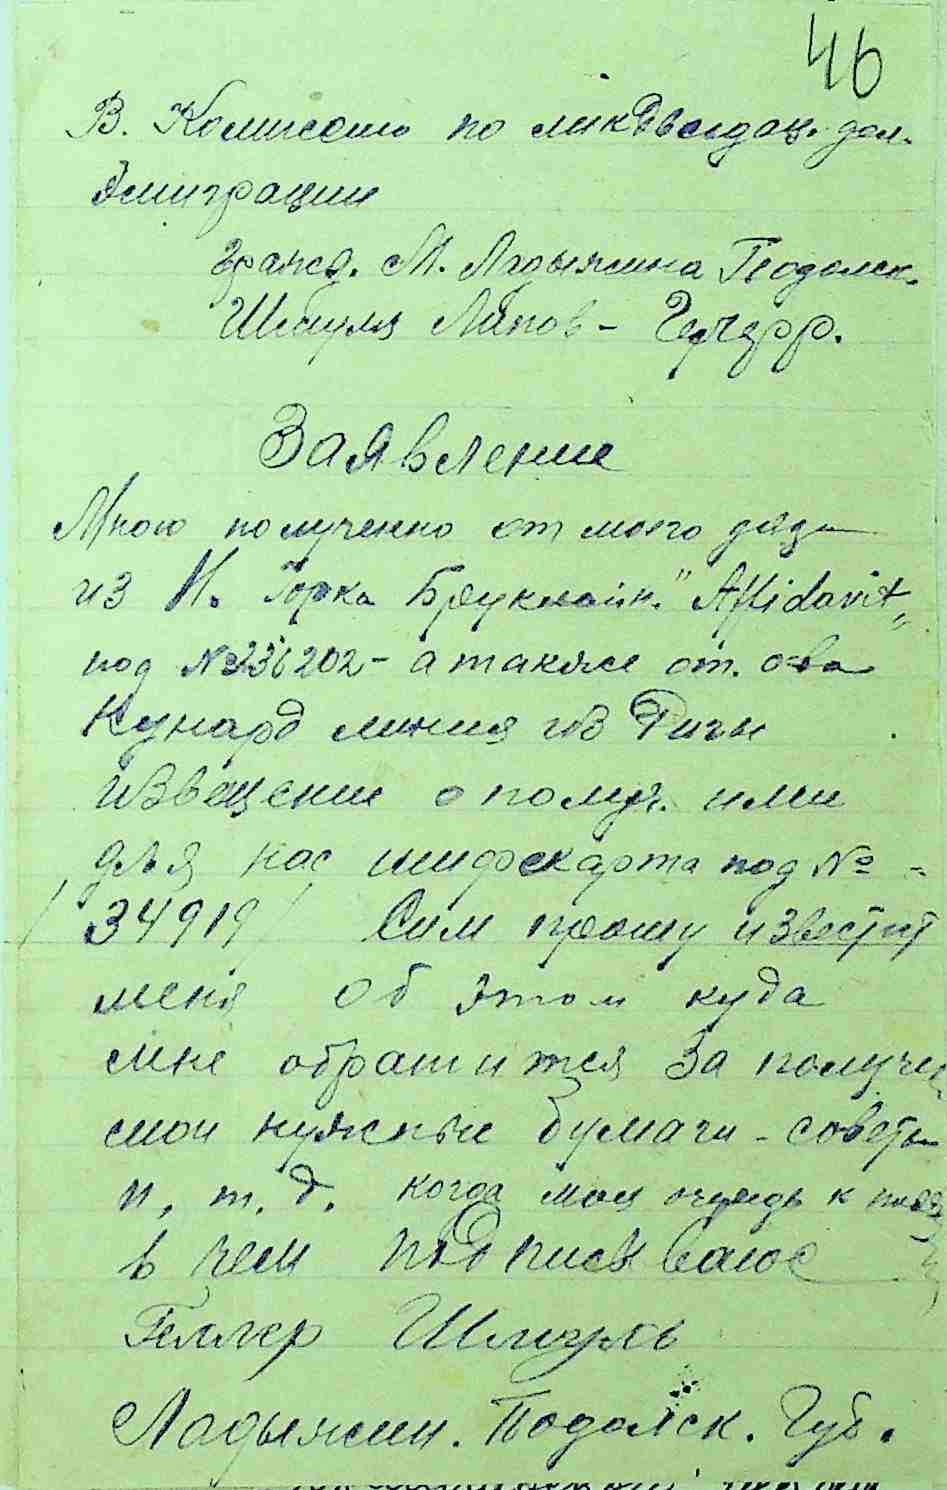 46
В. Комисею по эвалдац. дел.
Эмиграции
Гражд. М. Ладыжина Подолск.
Шмуля Липов-
Заявление
Мною полученно от моего дяди
из Н. Иорка Бруклайн. "Affidavit„
под №236202 – а также от. о-ва
Кунард линия из Риги
извещение о получ. ими
для нас шифскарта под № -
/34919/ Сим прошу известит
меня об этом куда
мне обратится за получе
мои нужные бумаги – советы
и, т, д. когда моя очередь к
в чем подписываюс
Геллер Шмуль
Ладыжин. Подольск. Губ.